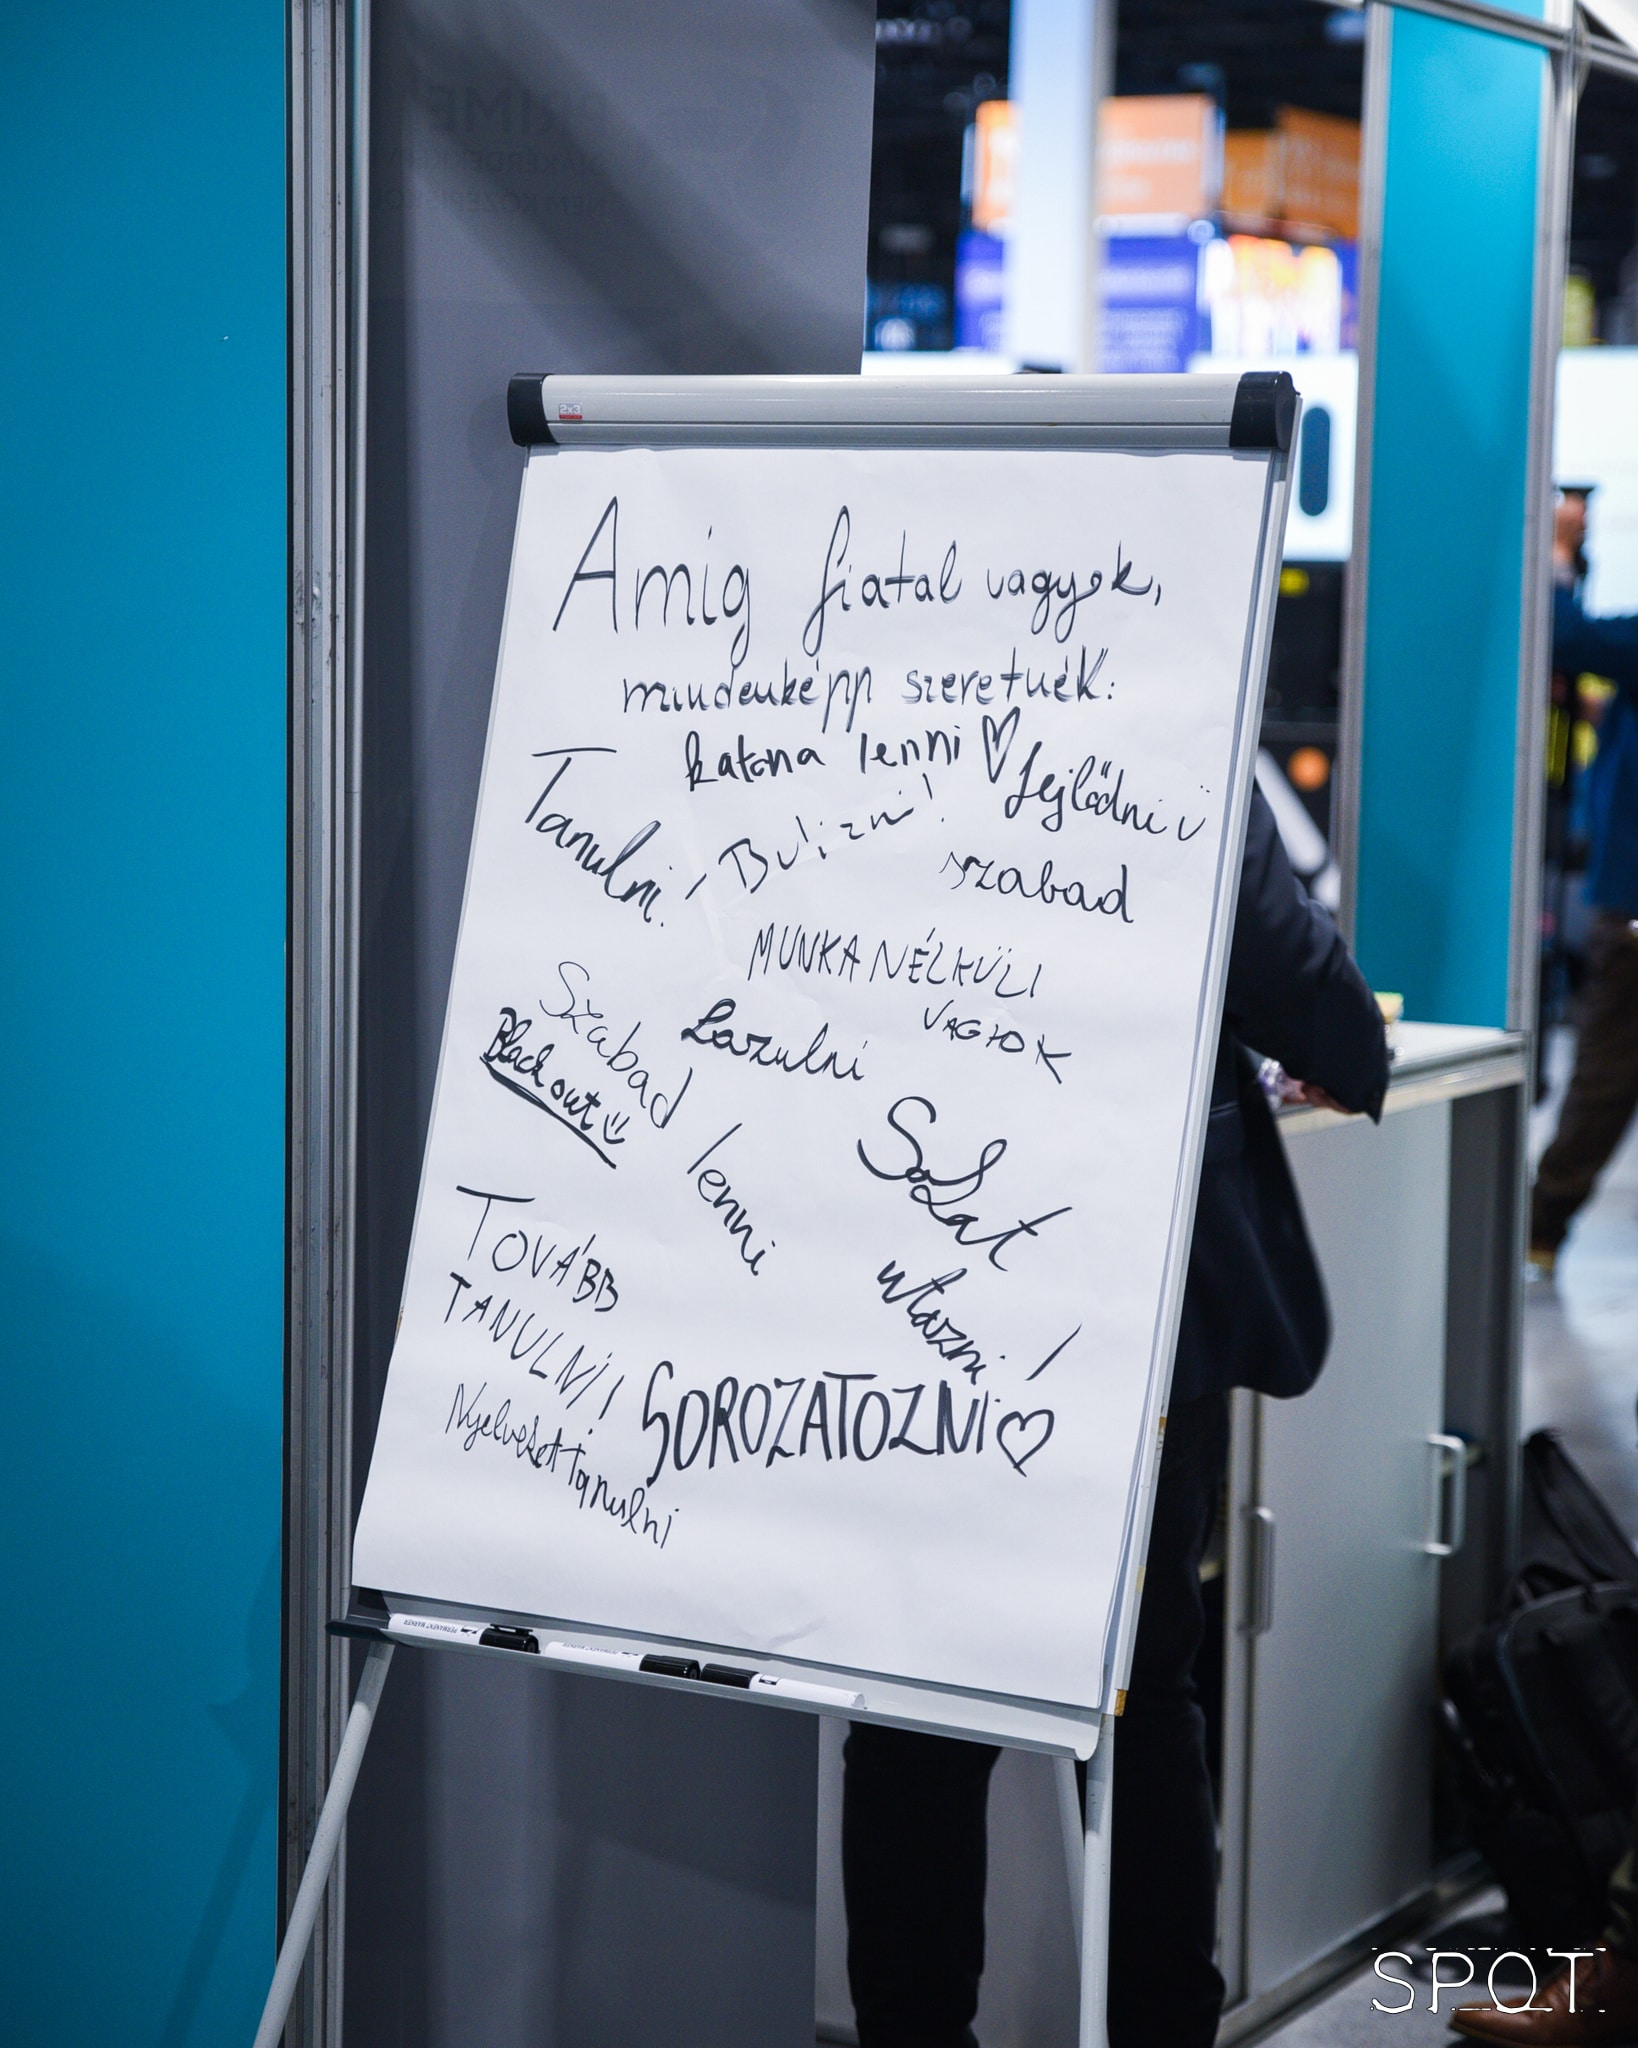 2x3
Amíg fiatal vagyok,
mindenképp szeretnék:
katona lenni
fejlődni
Tanulni!
Bulizni!
szabad
MUNKANÉLKÜLI
VAGYOK
Szabad
lenni
Lazulni
Black out
Sokat
utazni!
TOVÁBB
TANULNI!
SOROZATOZNI
Nyelveket tanulni
PERMANENT MARKER
PERMANENT MARKER
SPOT